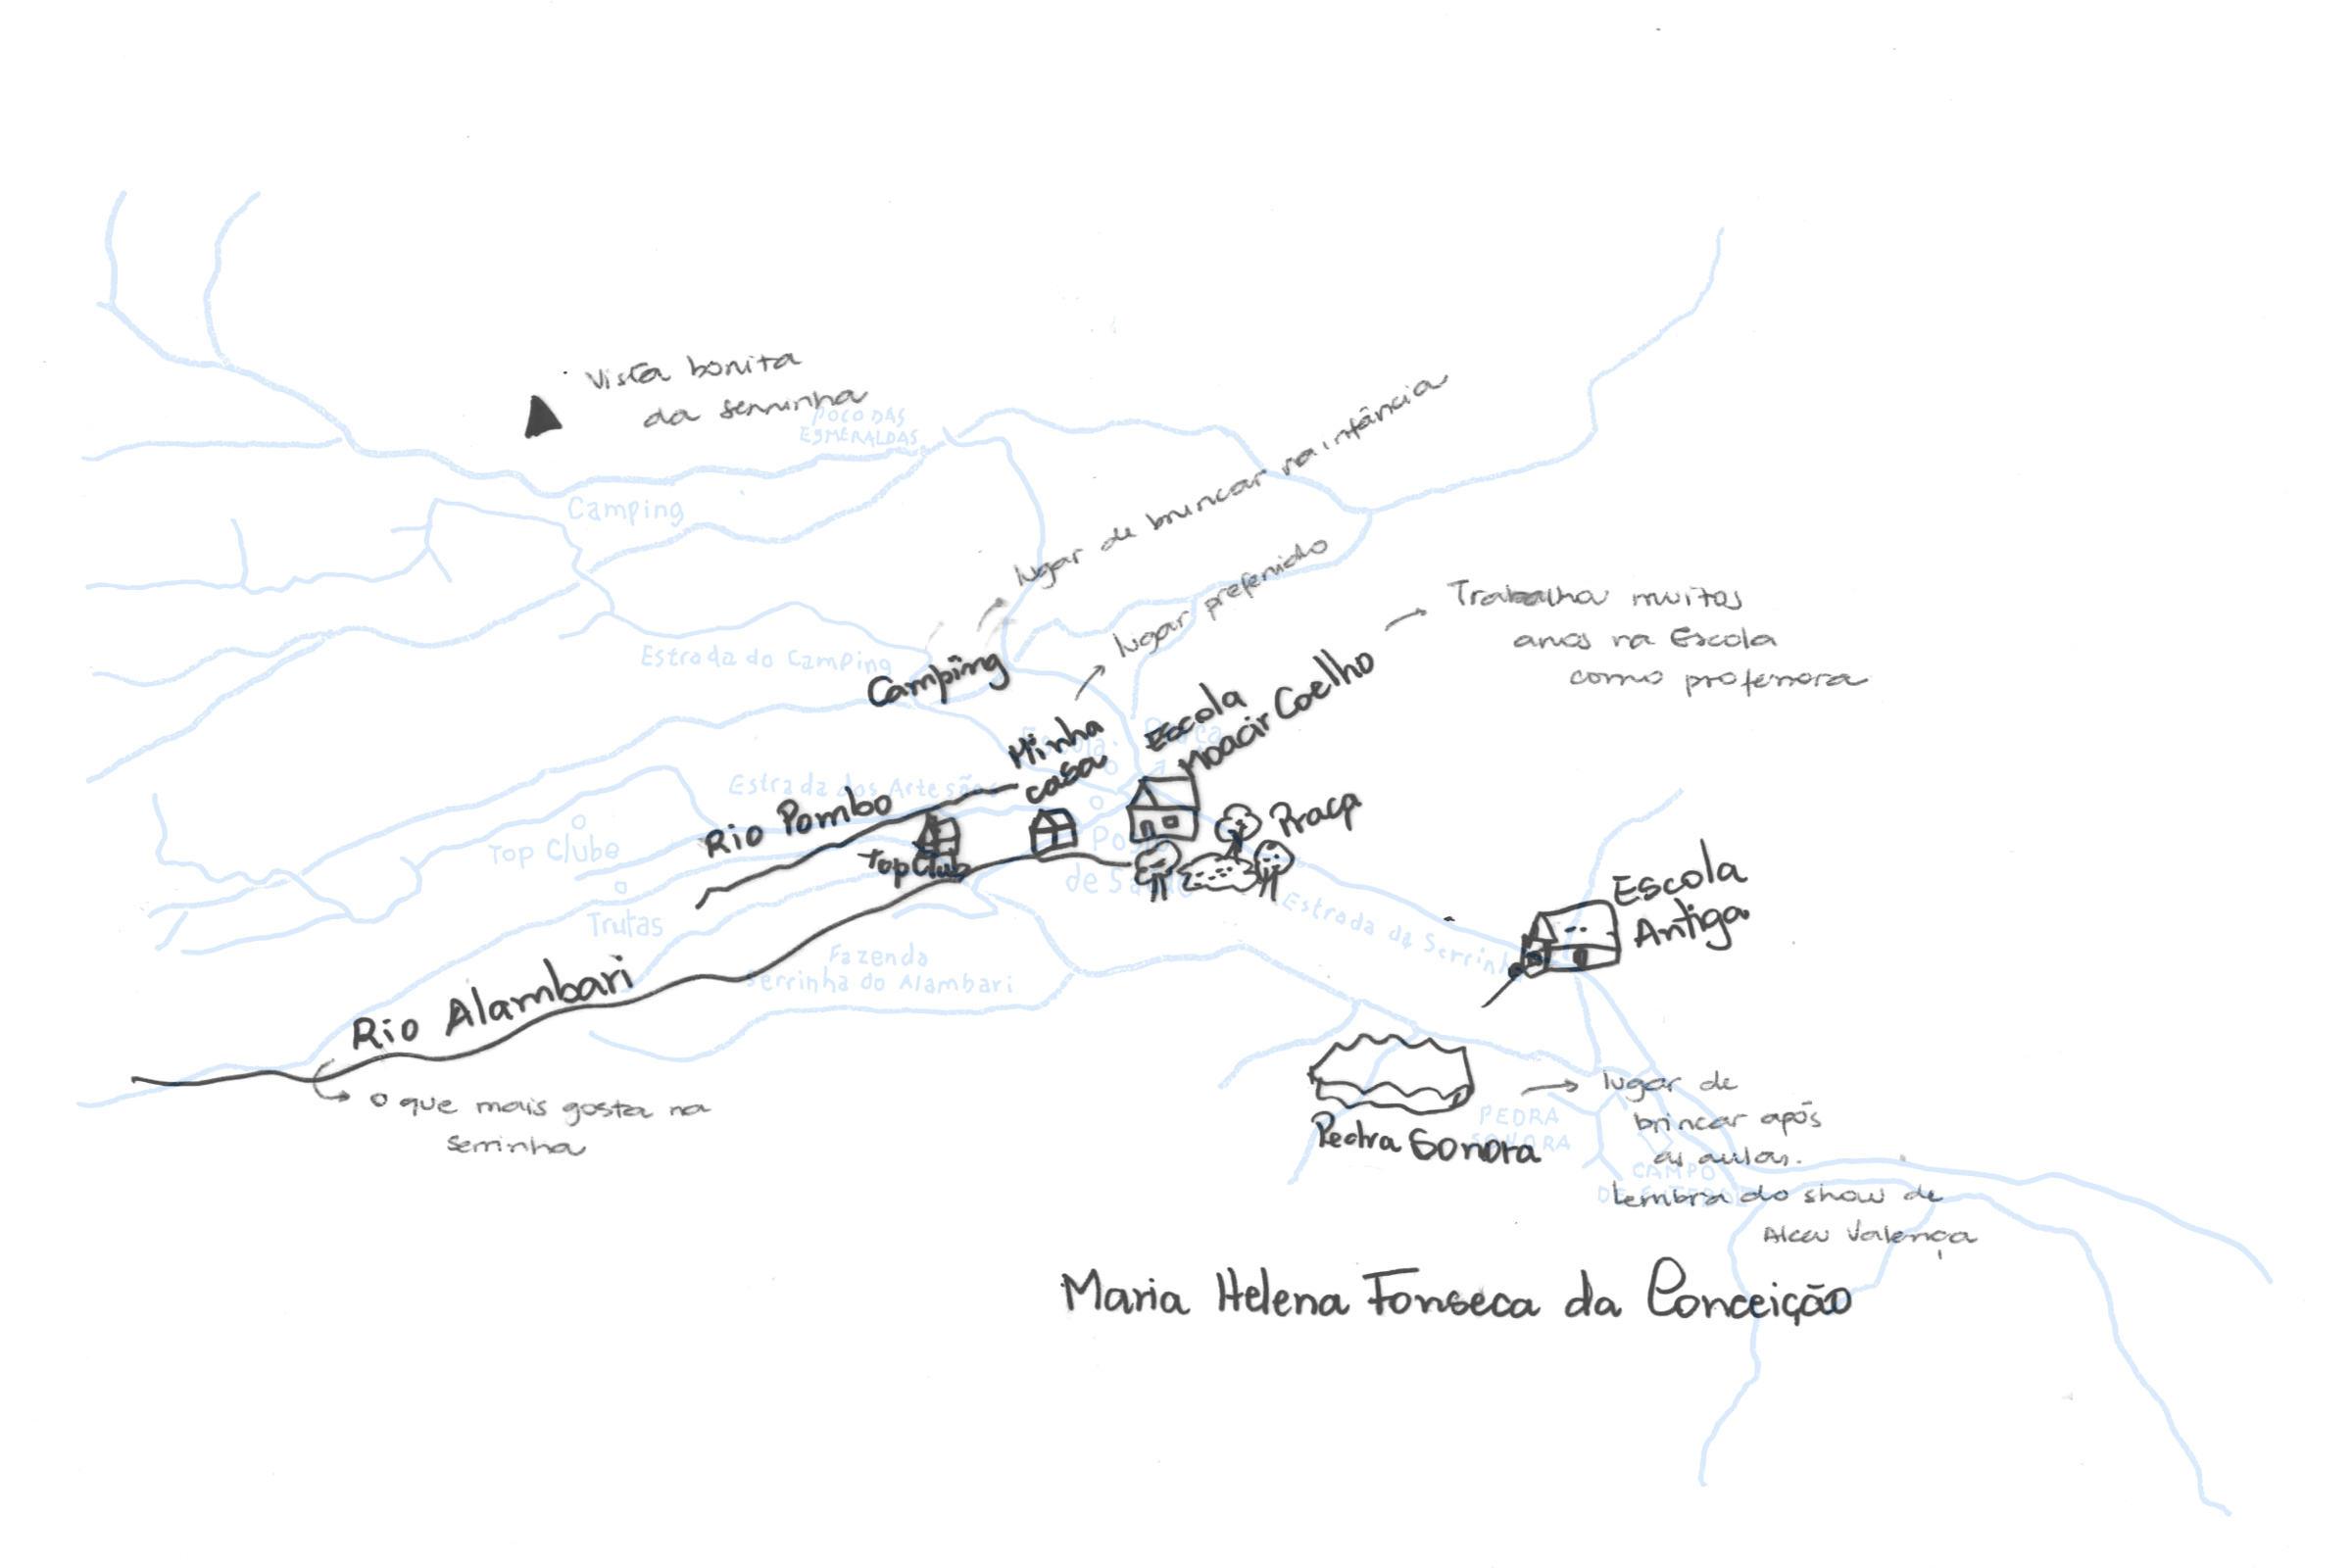 Vista bonita
da serrinha
POÇO DAS
ESMERALDAS
Camping
lugar de brincar na infância
lugar preferido
Estrada do Camping
Camping
Trabalha muitos
anos na Escola
como professora
Minha
casa
Escola
Moacir Coelho
Escola
Praça
Estrada dos Artesãos
Rio Pombo
Top Club
Praça
Top Clube
Posto
de Saúde
Trutas
Estrada da Serrinha
Escola
Antiga
Fazenda
Serrinha do Alambari
Rio Alambari
o que mais gosta na
serrinha
Pedra Sonora
PEDRA
SONORA
lugar de
brincar após
as aulas.
CAMPO
DE FUTEBOL
Lembra do show de
Alceu Valença
Maria Helena Fonseca da Conceição